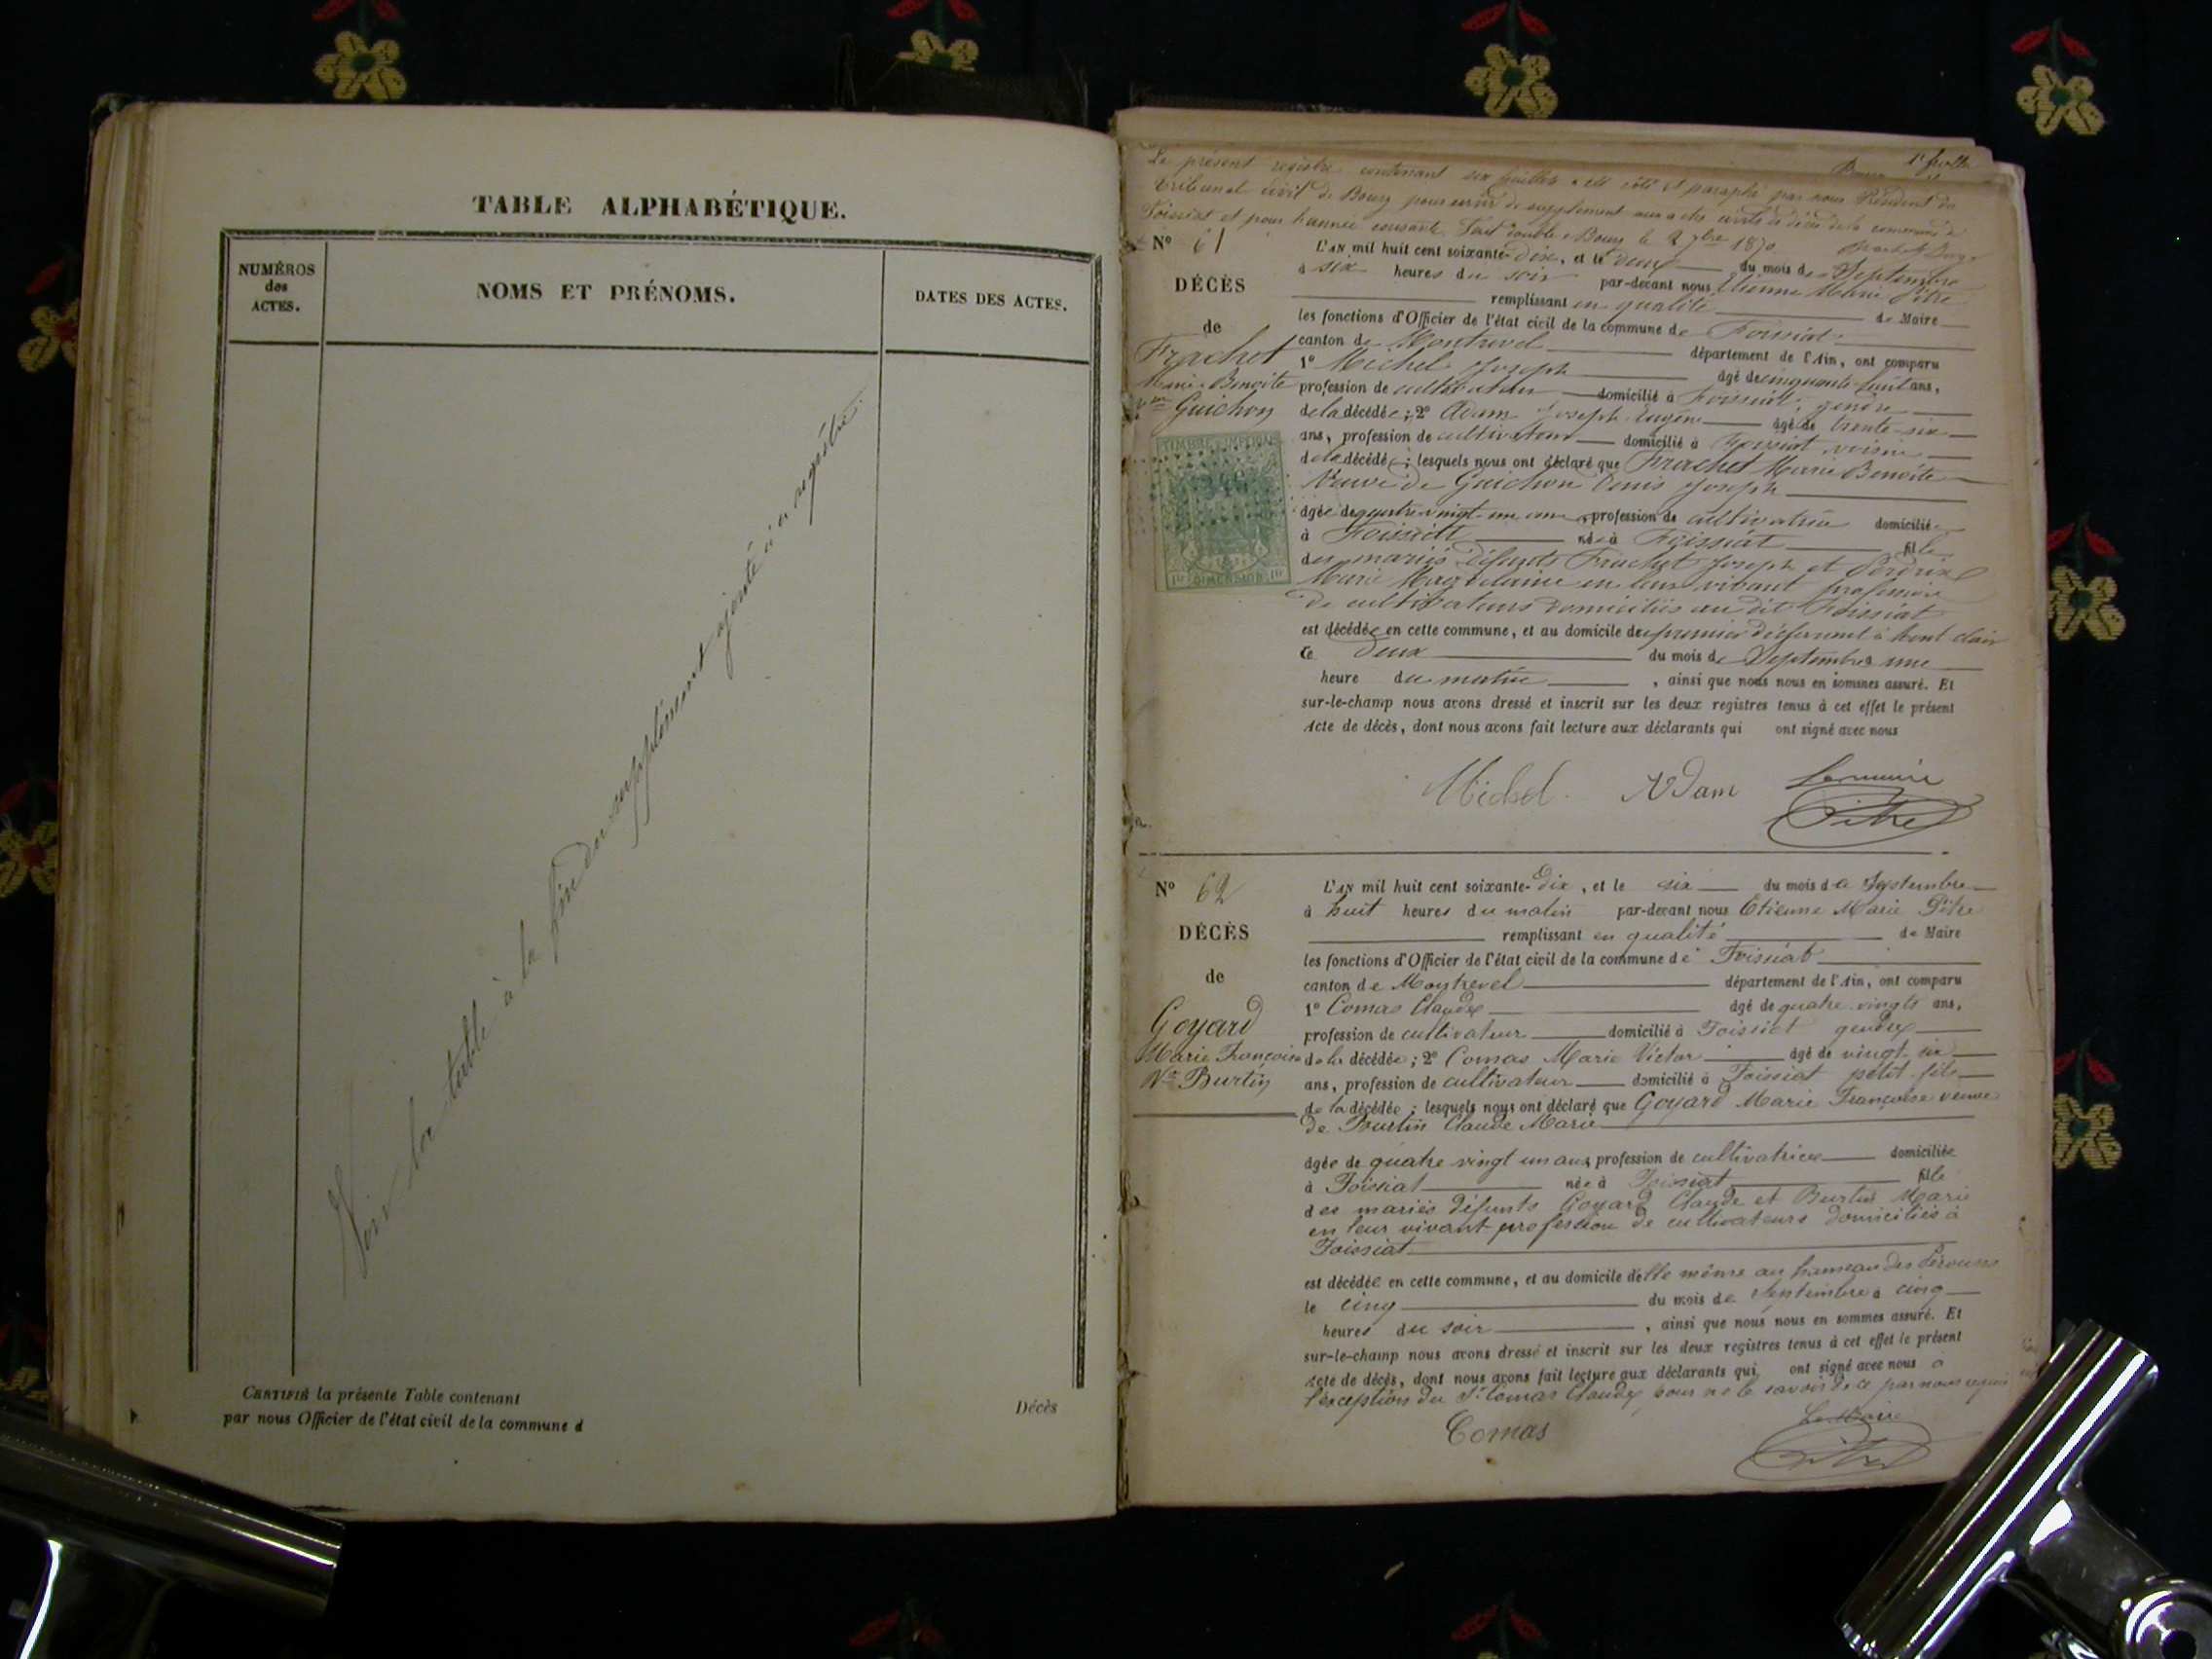 TABLE ALPHABÉTIQUE.
NUMÉROS
des
ACTES.
NOMS ET PRÉNOMS.
DATES DES ACTES.
Voir la table à la fin du supplément ajouté à ce registre.
CERTIFIÉ la présente Table contenant
par nous Officier de l'état civil de la commune d
Décès
1er feuillet
Le présent registre contenant six feuillets a été coté et paraphé par nous Président du
tribunal civil de Bourg pour servir de supplément aux actes civils de décès de la commune de
Foissiat et pour l'année courante. Fait double à Bourg le 2 7bre 1870
N° 61
DÉCÈS
de
Frachet
Marie Benoite
Vve Guichon
TIMBRE IMPÉRIAL
DIMENSION
L'AN mil huit cent soixante-dix, et le deux du mois de Septembre
à six heures du soir par-devant nous Etienne Marie Pitre
remplissant en qualité de Maire
les fonctions d'Officier de l'état civil de la commune de Foissiat
canton de Montrevel département de l'Ain, ont comparu
1° Michel Joseph âgé de cinquante-huit ans,
profession de cultivateur domicilié à Foissiat, gendre
de la décédée; 2° Adam Joseph Eugène âgé de trente-six
ans, profession de cultivateur domicilié à Foissiat voisin
de la décédée; lesquels nous ont déclaré que Frachet Marie Benoite
Veuve de Guichon Denis Joseph
âgée de quatre-vingt-un ans, profession de cultivatrice domiciliée
à Foissiat née à Foissiat fille
des mariés défunts Frachet Joseph et Perdrix
Marie Magdelaine en leur vivant profession
de cultivateurs domiciliés au dit Foissiat
est décédée en cette commune, et au domicile du premier déclarant à Mont clair
le deux du mois de Septembre à une
heure du matin, ainsi que nous nous en sommes assuré. Et
sur-le-champ nous avons dressé et inscrit sur les deux registres tenus à cet effet le présent
Acte de décès, dont nous avons fait lecture aux déclarants qui ont signé avec nous
Michel Adam Le maire
Pitre
N° 62
DÉCÈS
de
Goyard
Marie Françoise
Vve Burtin
L'AN mil huit cent soixante-Dix, et le six du mois de Septembre
à huit heures du matin par-devant nous Etienne Marie Pitre
remplissant en qualité de Maire
les fonctions d'Officier de l'état civil de la commune de Foissiat
canton de Montrevel département de l'Ain, ont comparu
1° Comas Claude âgé de quatre-vingts ans,
profession de cultivateur domicilié à Foissiat gendre
de la décédée; 2° Comas Marie Victor âgé de vingt six
ans, profession de cultivateur domicilié à Foissiat petit fils
de la décédée; lesquels nous ont déclaré que Goyard Marie Françoise veuve
de Burtin Claude Marie
âgée de quatre vingt un ans, profession de cultivatrice domiciliée
à Foissiat née à Foissiat fille
des mariés défunts Goyard Claude et Burtin Marie
en leur vivant profession de cultivateurs domiciliés à
Foissiat
est décédée en cette commune, et au domicile d'elle même au hameau des
le cinq du mois de Septembre à cinq
heures du soir, ainsi que nous nous en sommes assuré. Et
sur-le-champ nous avons dressé et inscrit sur les deux registres tenus à cet effet le présent
Acte de décès, dont nous avons fait lecture aux déclarants qui ont signé avec nous à
l'exception du Sr Comas Claude, pour ne le savoir de ce par nous requis
Comas Le Maire
Pitre